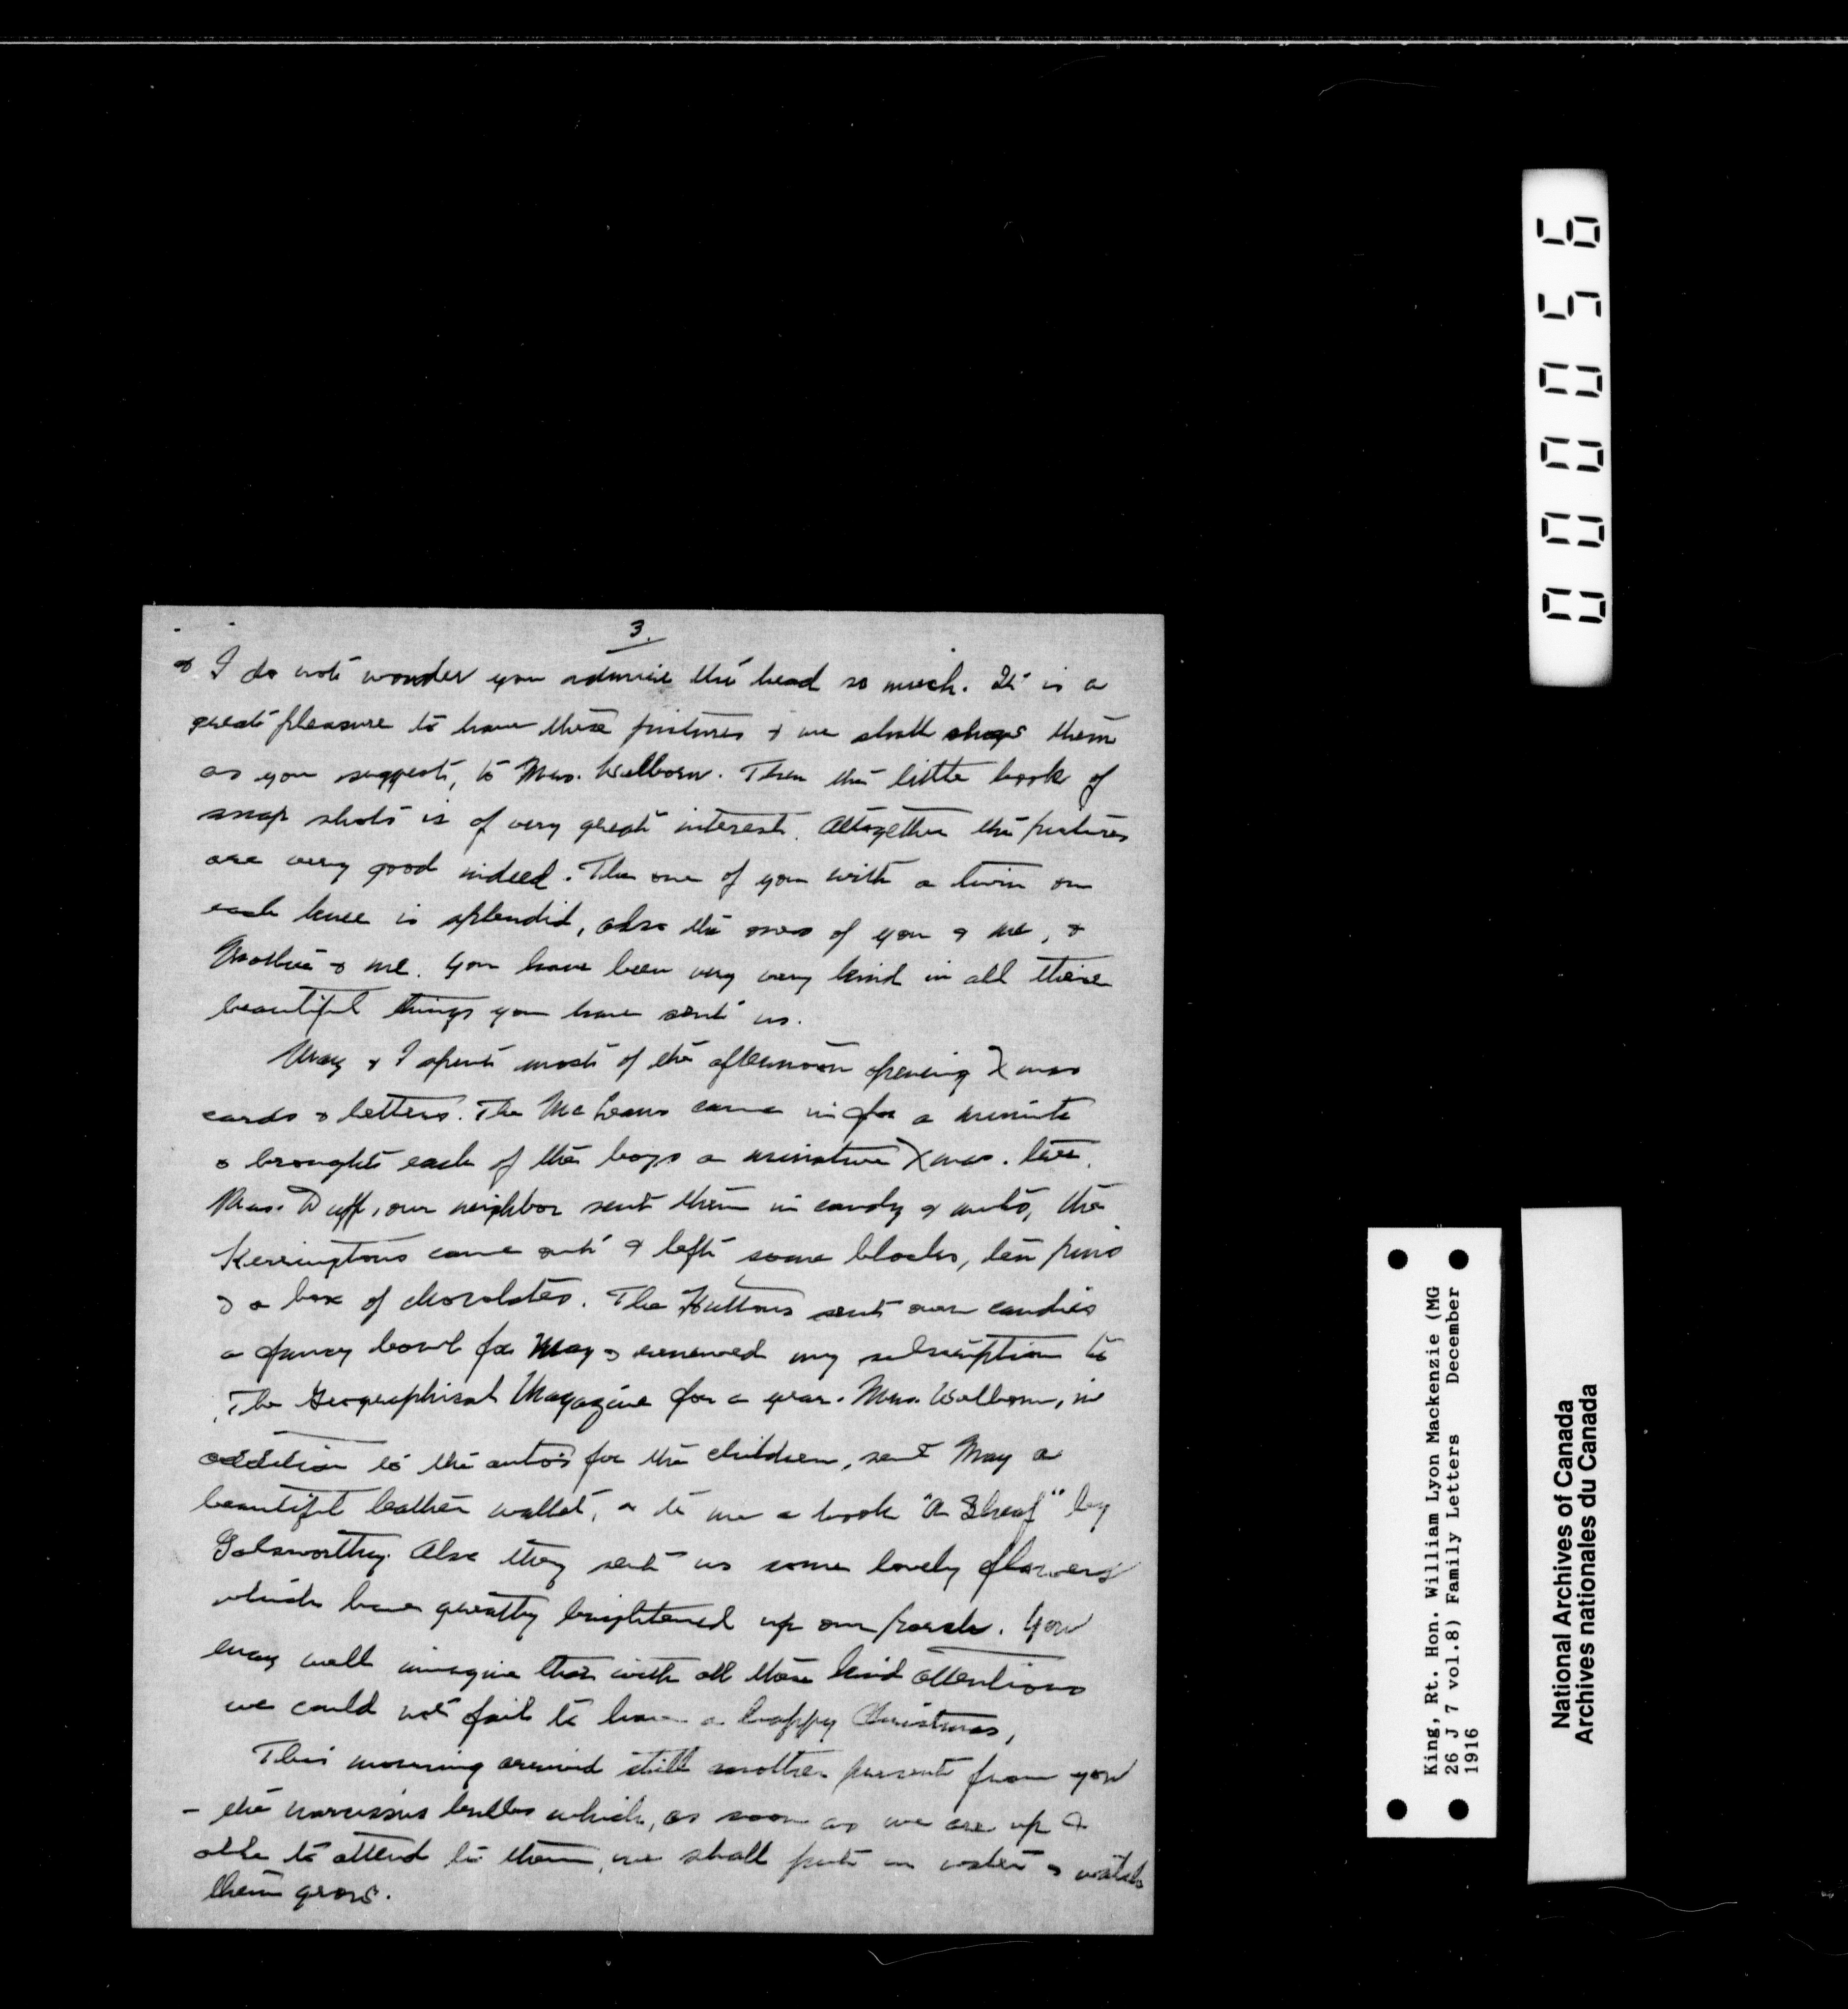 3.
& I do not wonder you admire the head so much. It is a
great pleasure to have these pictures & we shall show them
as you suggest, to Mrs. Welborn. Then the little book of
snap shots is of very great interest. Altogether the pictures
are very good indeed. The one of you with a twin on
each knee is splendid, also the ones of you & me, &
Mother & me. You have been very very kind in all these
beautiful things you have sent us.
May & I spent most of the afternoon opening Xmas
cards & letters. The McLeans came in for a minute
& brought each of the boys a minature Xmas. tree.
Mrs. Duff, our neighbor sent them in candy & nuts, the
Kerringtons came out & left some blocks, ten pins
& a box of chocolates. The Huttons sent over candies
a fancy bowl for May & renewed my subscription to
The Geographical Magazine for a year. Mrs. Welborn, in
addition to the autos for the children, sent May a
beautiful leather wallet, & to me a book "A Sheaf" by
Galsworthy. Also they sent us some lovely flowers
which have greatly brightened up our porch. You
may well imagine that with all these kind attentions
we could not fail to have a happy Christmas,
This morning arrived still another present from you
- the narcissus bulbs which, as soon as we are up &
able to attend to them, we shall put in water & watch
them grow.
000056
King, Rt. Hon. William Lyon Mackenzie (MG
26 J 7 vol.8) Family Letters December
1916
National Archives of Canada
Archives nationales du Canada